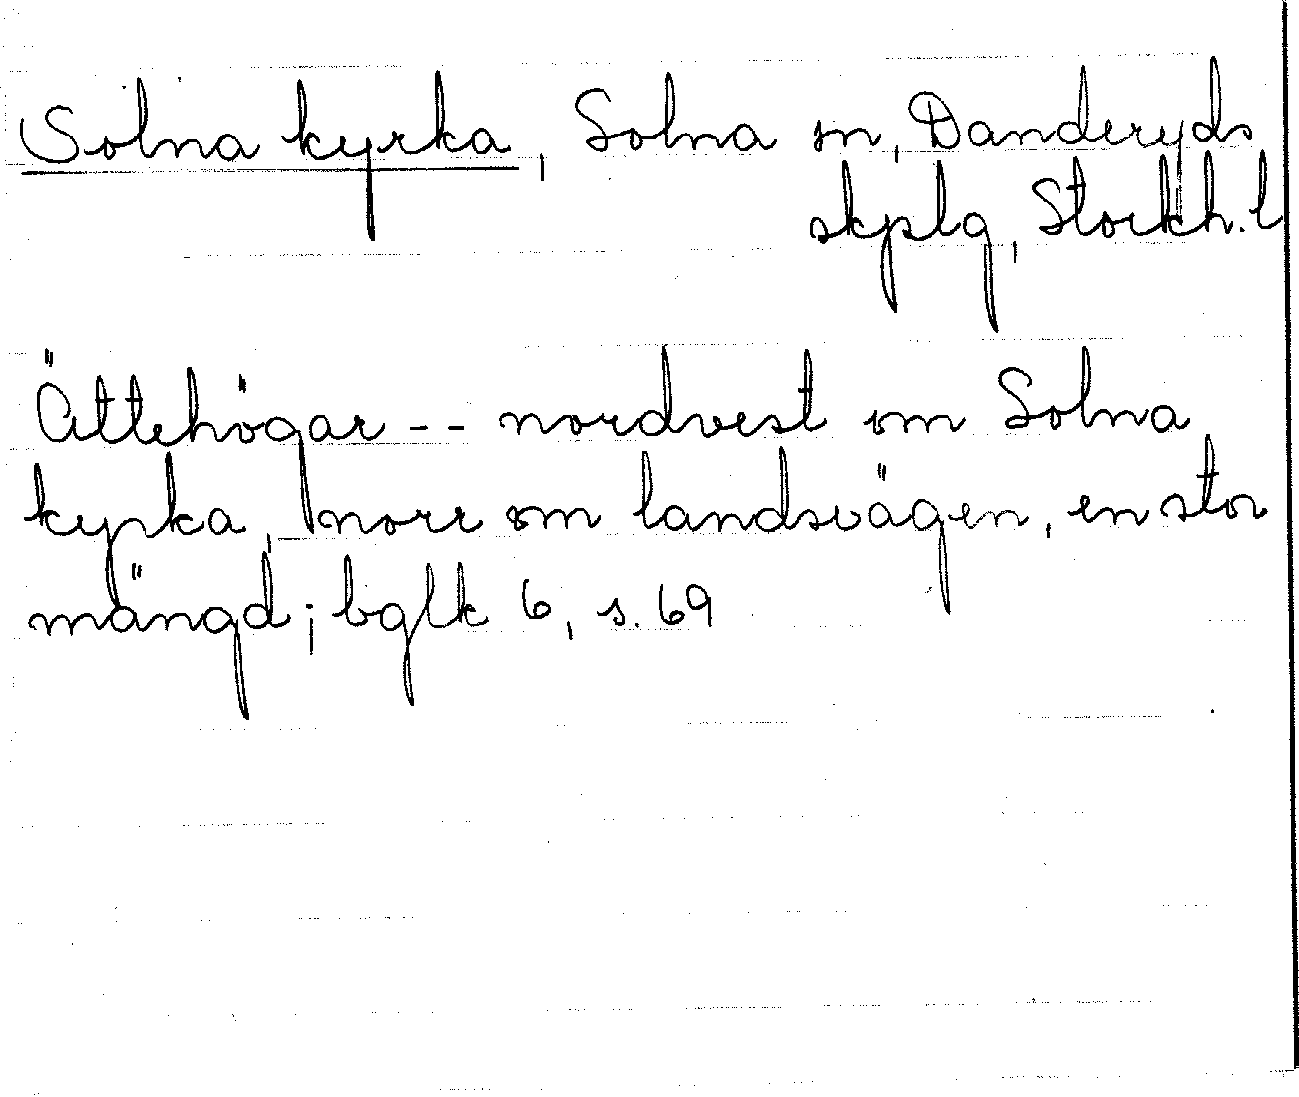 Solna kyrka, Solna sn, Danderyds
skplg, Stockh. l
Ättehögar -- nordvest om Solna
kyrka, norr om landsvägen, en stor
mängd; bglk 6, s. 69